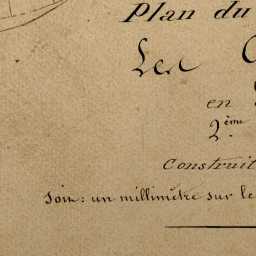 Plan du
Les
en
2.ème
Construit
Soit: un millimètre sur le